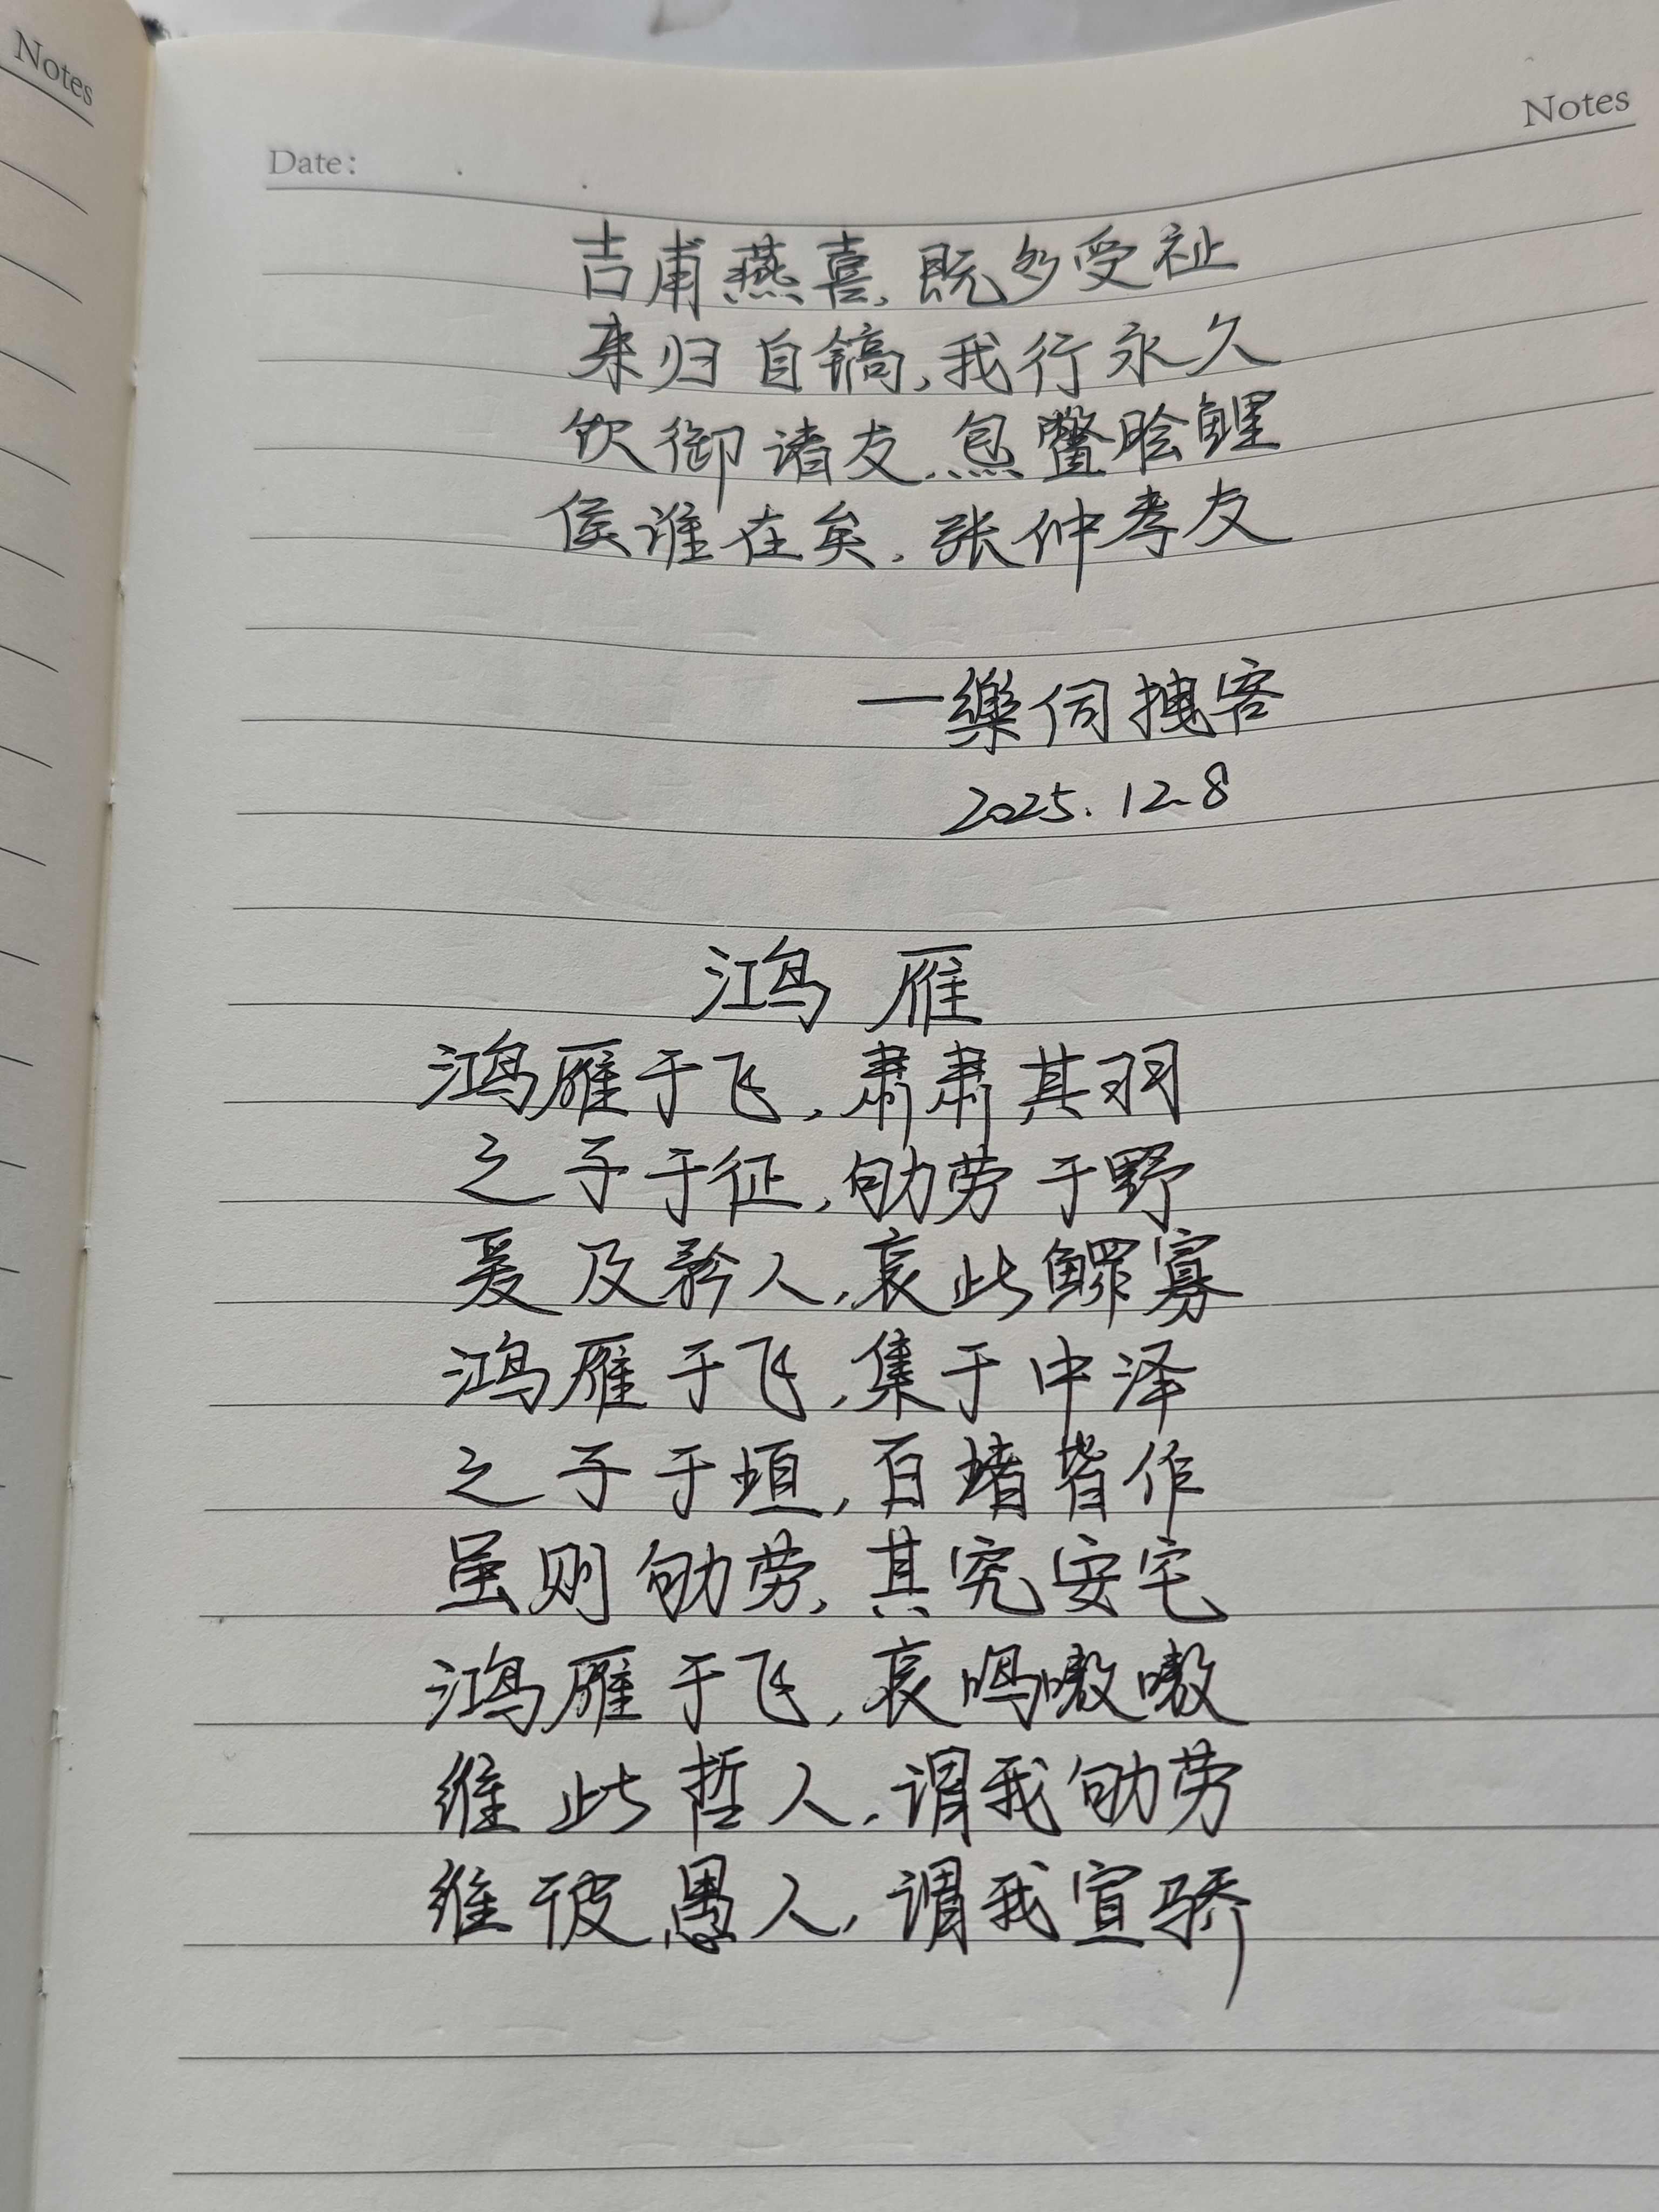 Notes
Notes
Date:
吉甫燕喜,既多受祉
来归自镐,我行永久
饮御诸友,炰鳖脍鲤
侯谁在矣,张仲孝友
一樂伺拽客
2025.12.8
鸿雁
鸿雁于飞,肃肃其羽
之子于征,劬劳于野
爰及矜人,哀此鳏寡
鸿雁于飞,集于中泽
之子于垣,百堵皆作
虽则劬劳,其究安宅
鸿雁于飞,哀鸣嗷嗷
维此哲人,谓我劬劳
维彼愚人,谓我宣骄